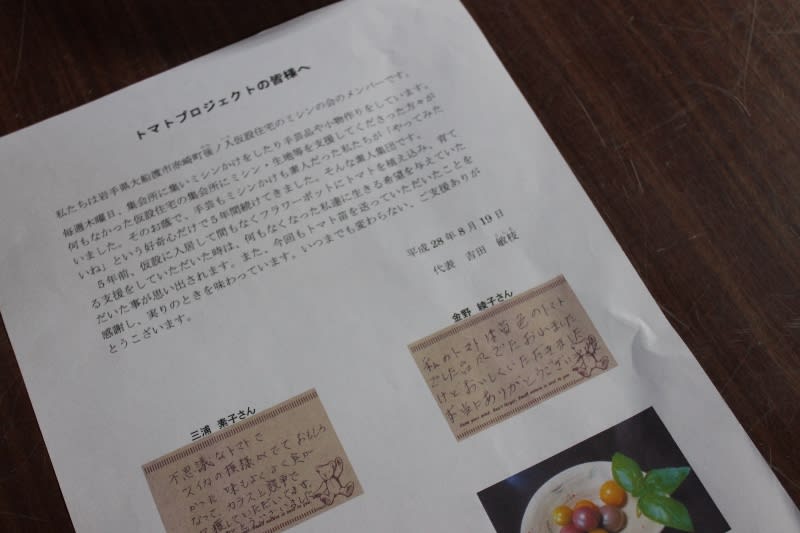 トマトプロジェクトの皆様へ
私たちは岩手県大船渡市赤崎町後ノ入仮設住宅のミシンの会のメンバーです。
毎週木曜日、集会所に集いミシンかけをしたり手芸品や小物作りをしています。
何もなかった仮設住宅の集会所にミシン・生地等を支援してくださった方々が
いました。そのお蔭で、手芸もミシンかけも素人だった私たちが「やってみた
いね」という好奇心だけで5年間続けてきました。そんな素人集団です。
5年前、仮設に入居して間もなくフラワーポットにトマトを植え込み、育て
る支援をしていただいた時は、何もなくなった私達に生きる希望を与えていた
だいた事が思い出されます。また、今回もトマト苗を送っていただいたことを
感謝し、実りのときを味わっています。いつまでも変わらない、ご支援ありが
とうございます。
平成28年8月19日
代表 吉田 敏枝
金野 綾子さん
私のトマトは黄色のトマト
でした
けどおいしくいただきました
本当にありがとうござい
三浦 素子さん
不思議なトマトで
スイカの模様がでて おもしろ
かった 味もよく よく長が
なって、カラスと競争で